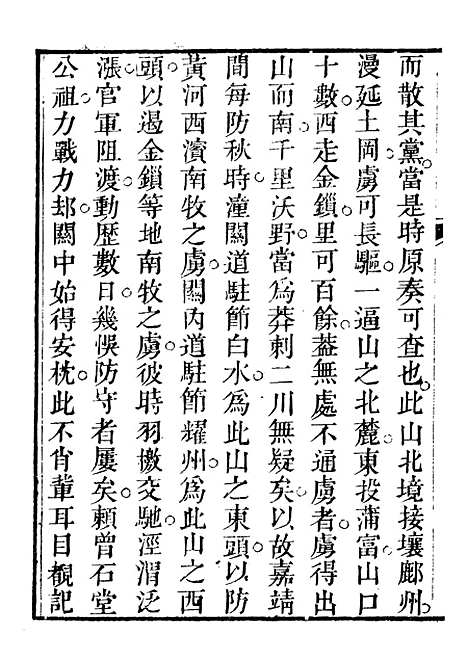 而散其黨當是時原奏可查也此山北境接壤鄜州
漫延土岡虜可長驅一逼山之北麓東投蒲富山口
十數西走金鎖里可百餘葢無處不通虜者虜得出
山而南千里沃野當為莽刺二川無疑矣以故嘉靖
間每防秋時潼關道駐節白水為此山之東頭以防
黃河西濱南牧之虜關內道駐節耀州為此山之西
頭以遏金鎖等地南牧之虜彼時羽檄交馳涇渭泛
漲官軍阻渡動歷數日幾悞防守者屢矣頼曾石堂
公祖力戰力却關中始得安枕此不肖軰耳目覩記